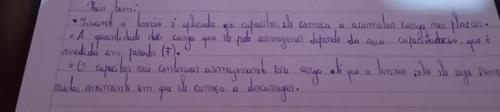 Pois bem:
• Quando a tensão é aplicada ao capacitor, ele começa a acumular carga nas placas.
• A quantidade de carga que ele pode armazenar depende da sua capacitância, que é
medida em farads (F).
• O capacitor vai continuar armazenando essa carga até que a tensão sobre ele seja
momento em que ele começa a descarregar.